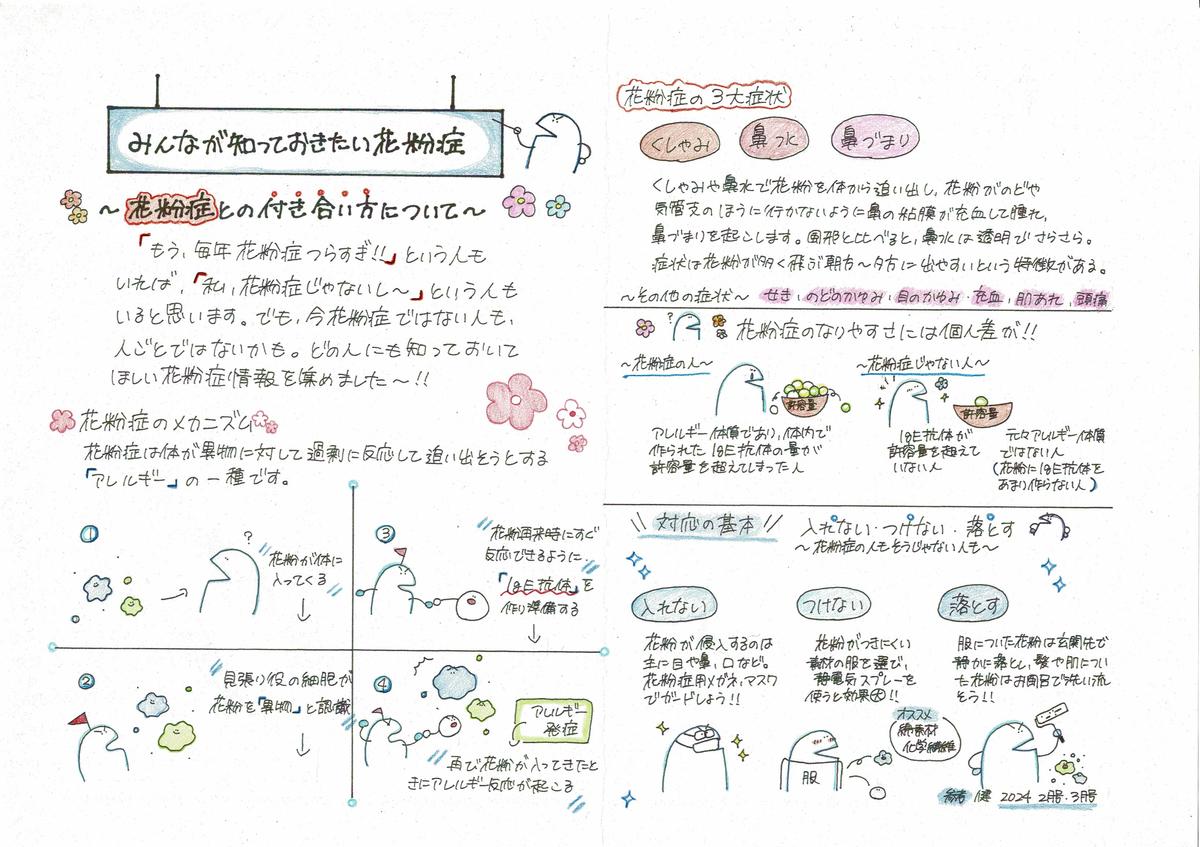 みんなが知っておきたい花粉症
～花粉症との付き合い方について～
「もう、毎年花粉症つらすぎ!!」という人も
いれば、「私、花粉症じゃないし〜」という人も
いると思います。でも、今花粉症ではない人も、
人ごとではないかも。どの人にも知っておいて
ほしい花粉症情報を集めました〜!!
花粉症のメカニズム
花粉症は体が異物に対して過剰に反応して追い出そうとする
「アレルギー」の一種です。
①
?
花粉が体に
入ってくる
↓
②
見張り役の細胞が
花粉を「異物」と認識
↓
③
花粉再来時にすぐ
反応できるように、
「IgE抗体」を
作り準備する
↓
④
アレルギー
発症
再び花粉が入ってきたと
きにアレルギー反応が起こる
花粉症の3大症状
くしゃみ 鼻水 鼻づまり
くしゃみや鼻水で花粉を体から追い出し、花粉がのどや
気管支のほうに行かないように鼻の粘膜が充血して腫れ、
鼻づまりを起こします。風邪と比べると、鼻水は透明でさらさら。
症状は花粉が多く飛ぶ朝方〜夕方に出やすいという特徴がある。
〜その他の症状〜 せき、のどのかゆみ・目のかゆみ・充血、肌あれ、頭痛
? 花粉症のなりやすさには個人差が!!
〜花粉症の人〜
許容量
アレルギー体質であり、体内で
作られたIgE抗体の量が
許容量を超えてしまった人
〜花粉症じゃない人〜
許容量
IgE抗体が
許容量を超えて
いない人
元々アレルギー体質
ではない人
(花粉にIgE抗体を
あまり作らない人)
\\ 対応の基本 // 入れない・つけない・落とす
〜花粉症の人もそうじゃない人も〜
入れない
花粉が侵入するのは
主に目や鼻、口など。
花粉症用メガネ、マスク
でガードしよう!!
つけない
花粉がつきにくい
素材の服を選び、
静電気スプレーを
使うと効果大!!
服
オススメ
綿素材
化学繊維
落とす
服についた花粉は玄関先で
静かに落とし、髪や肌につい
た花粉はお風呂で洗い流
そう!!
参考 健 2024 2月号・3月号